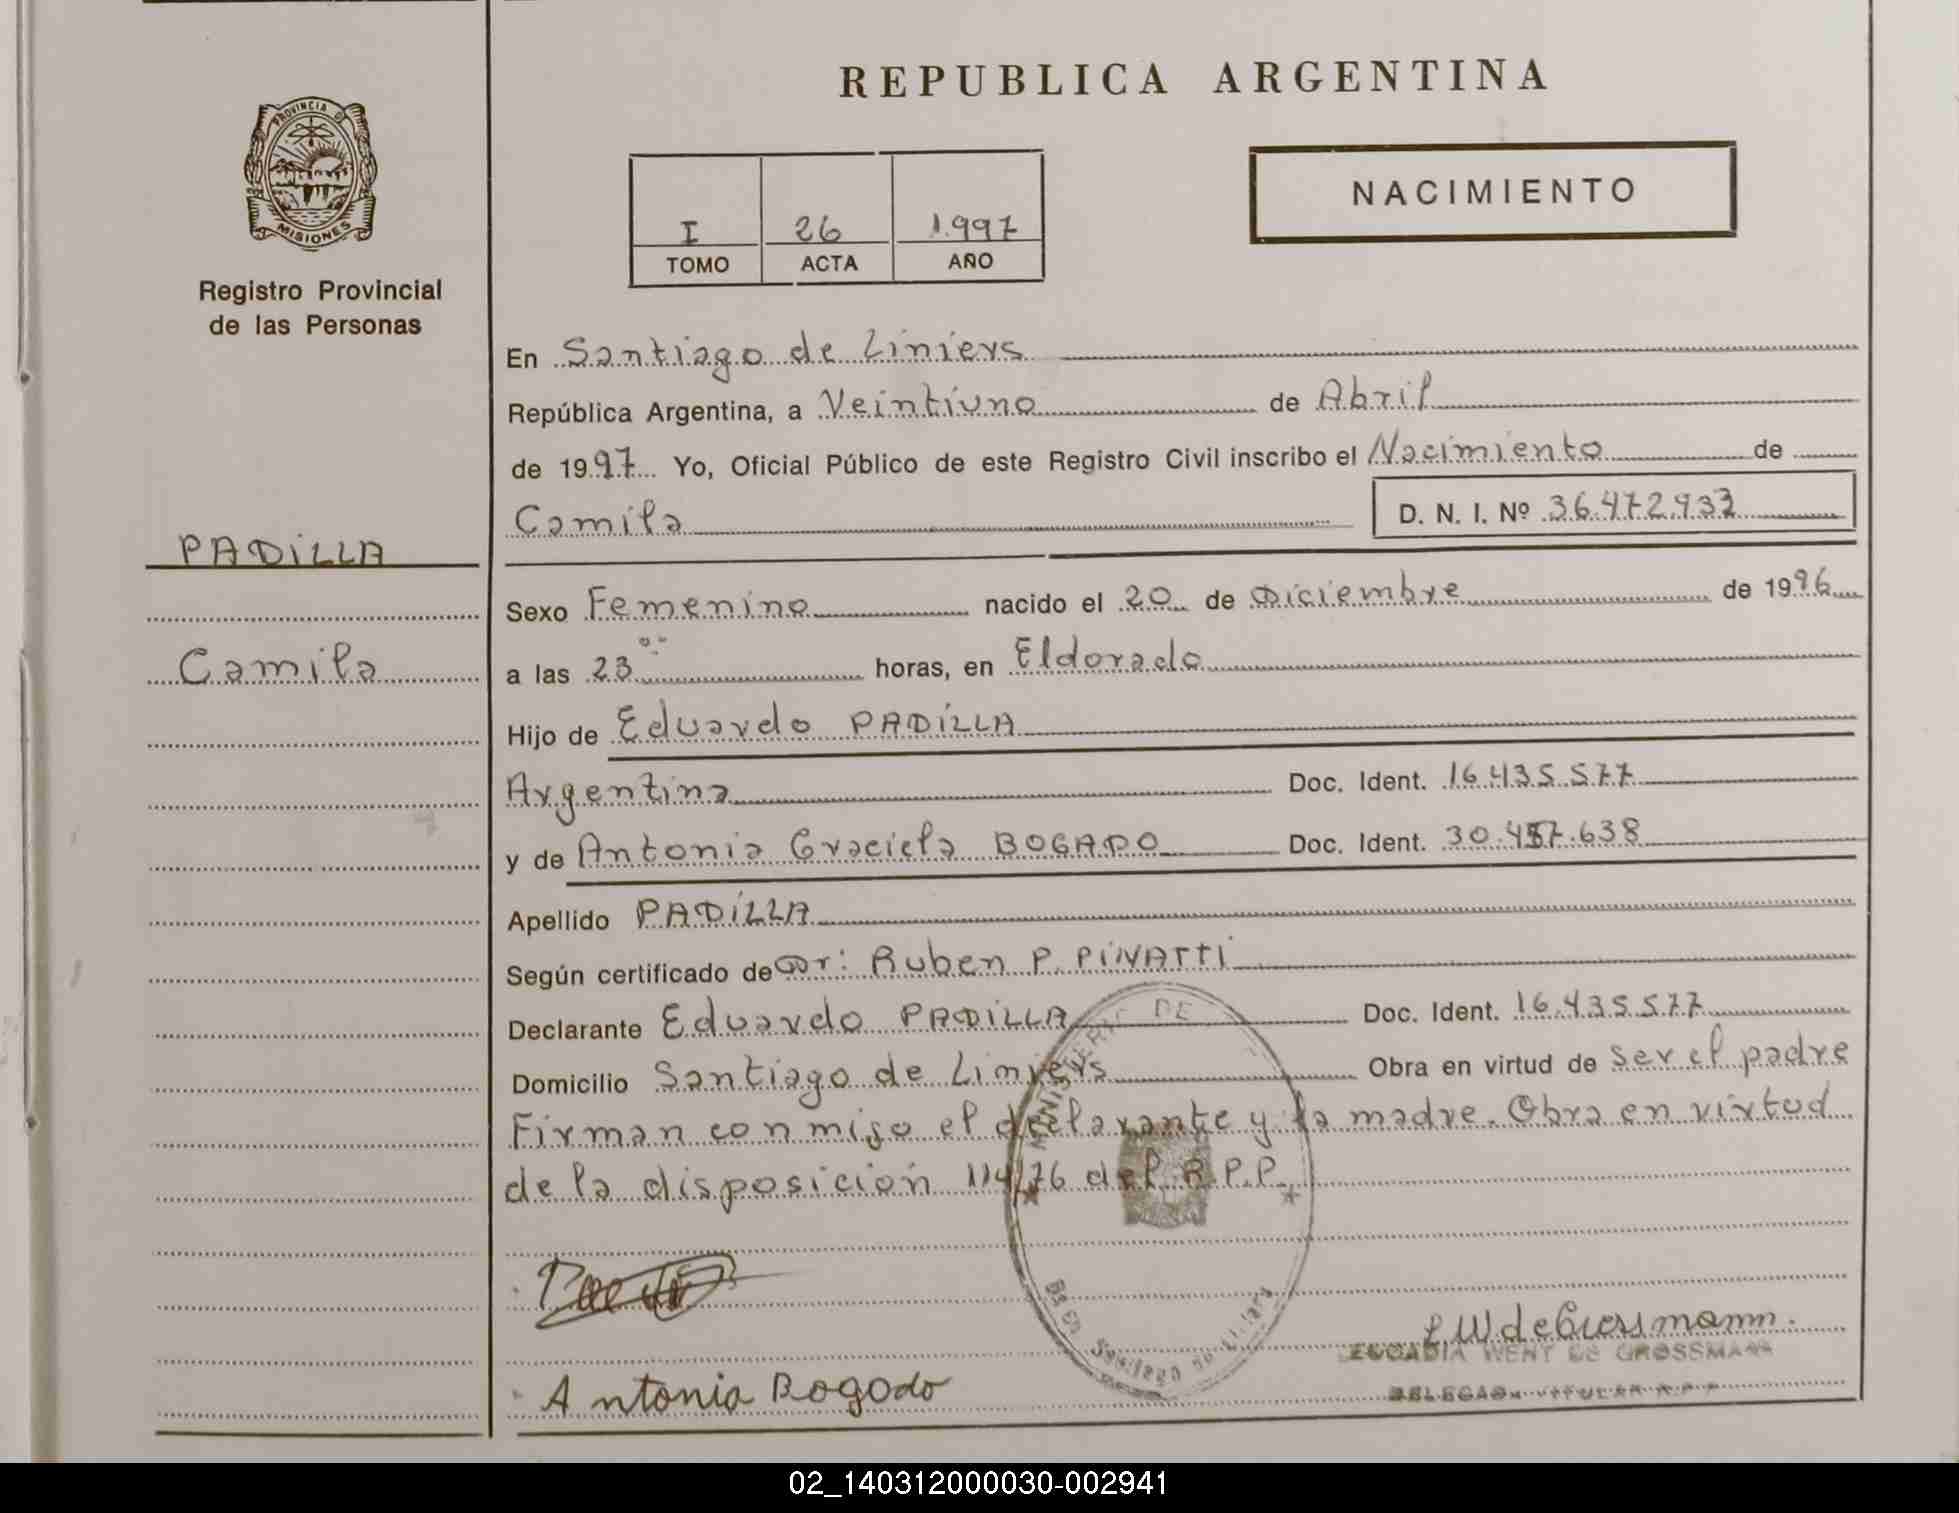 REPUBLICA ARGENTINA
PROVINCIA DE
MISIONES
Registro Provincial
de las Personas
I 26 1.997
TOMO ACTA AÑO
NACIMIENTO
En Santiago de Liniers
República Argentina, a Veintiuno de Abril
de 1997 Yo, Oficial Público de este Registro Civil inscribo el Nacimiento de
Camila D. N. I. Nº 36.472.933
PADILLA
Camila
Sexo Femenino nacido el 20 de Diciembre de 1996
a las 23 horas, en Eldorado
Hijo de Eduardo PADILLA
Argentina Doc. Ident. 16.435.577
y de Antonia Graciela BOGADO Doc. Ident. 30.457.638
Apellido PADILLA
Según certificado de Dr: Ruben P. PINATTI
Declarante Eduardo PADILLA Doc. Ident. 16.435.577
Domicilio Santiago de Liniers Obra en virtud de ser el padre
Firman conmigo el declarante y la madre. Obra en virtud
de la disposición 114/76 del R.P.P.
MINISTERIO DE
Santiago de Liniers
L W de Grossmann.
LEOCADIA WENT DE GROSSMANN
Antonia Bogado
02_140312000030-002941